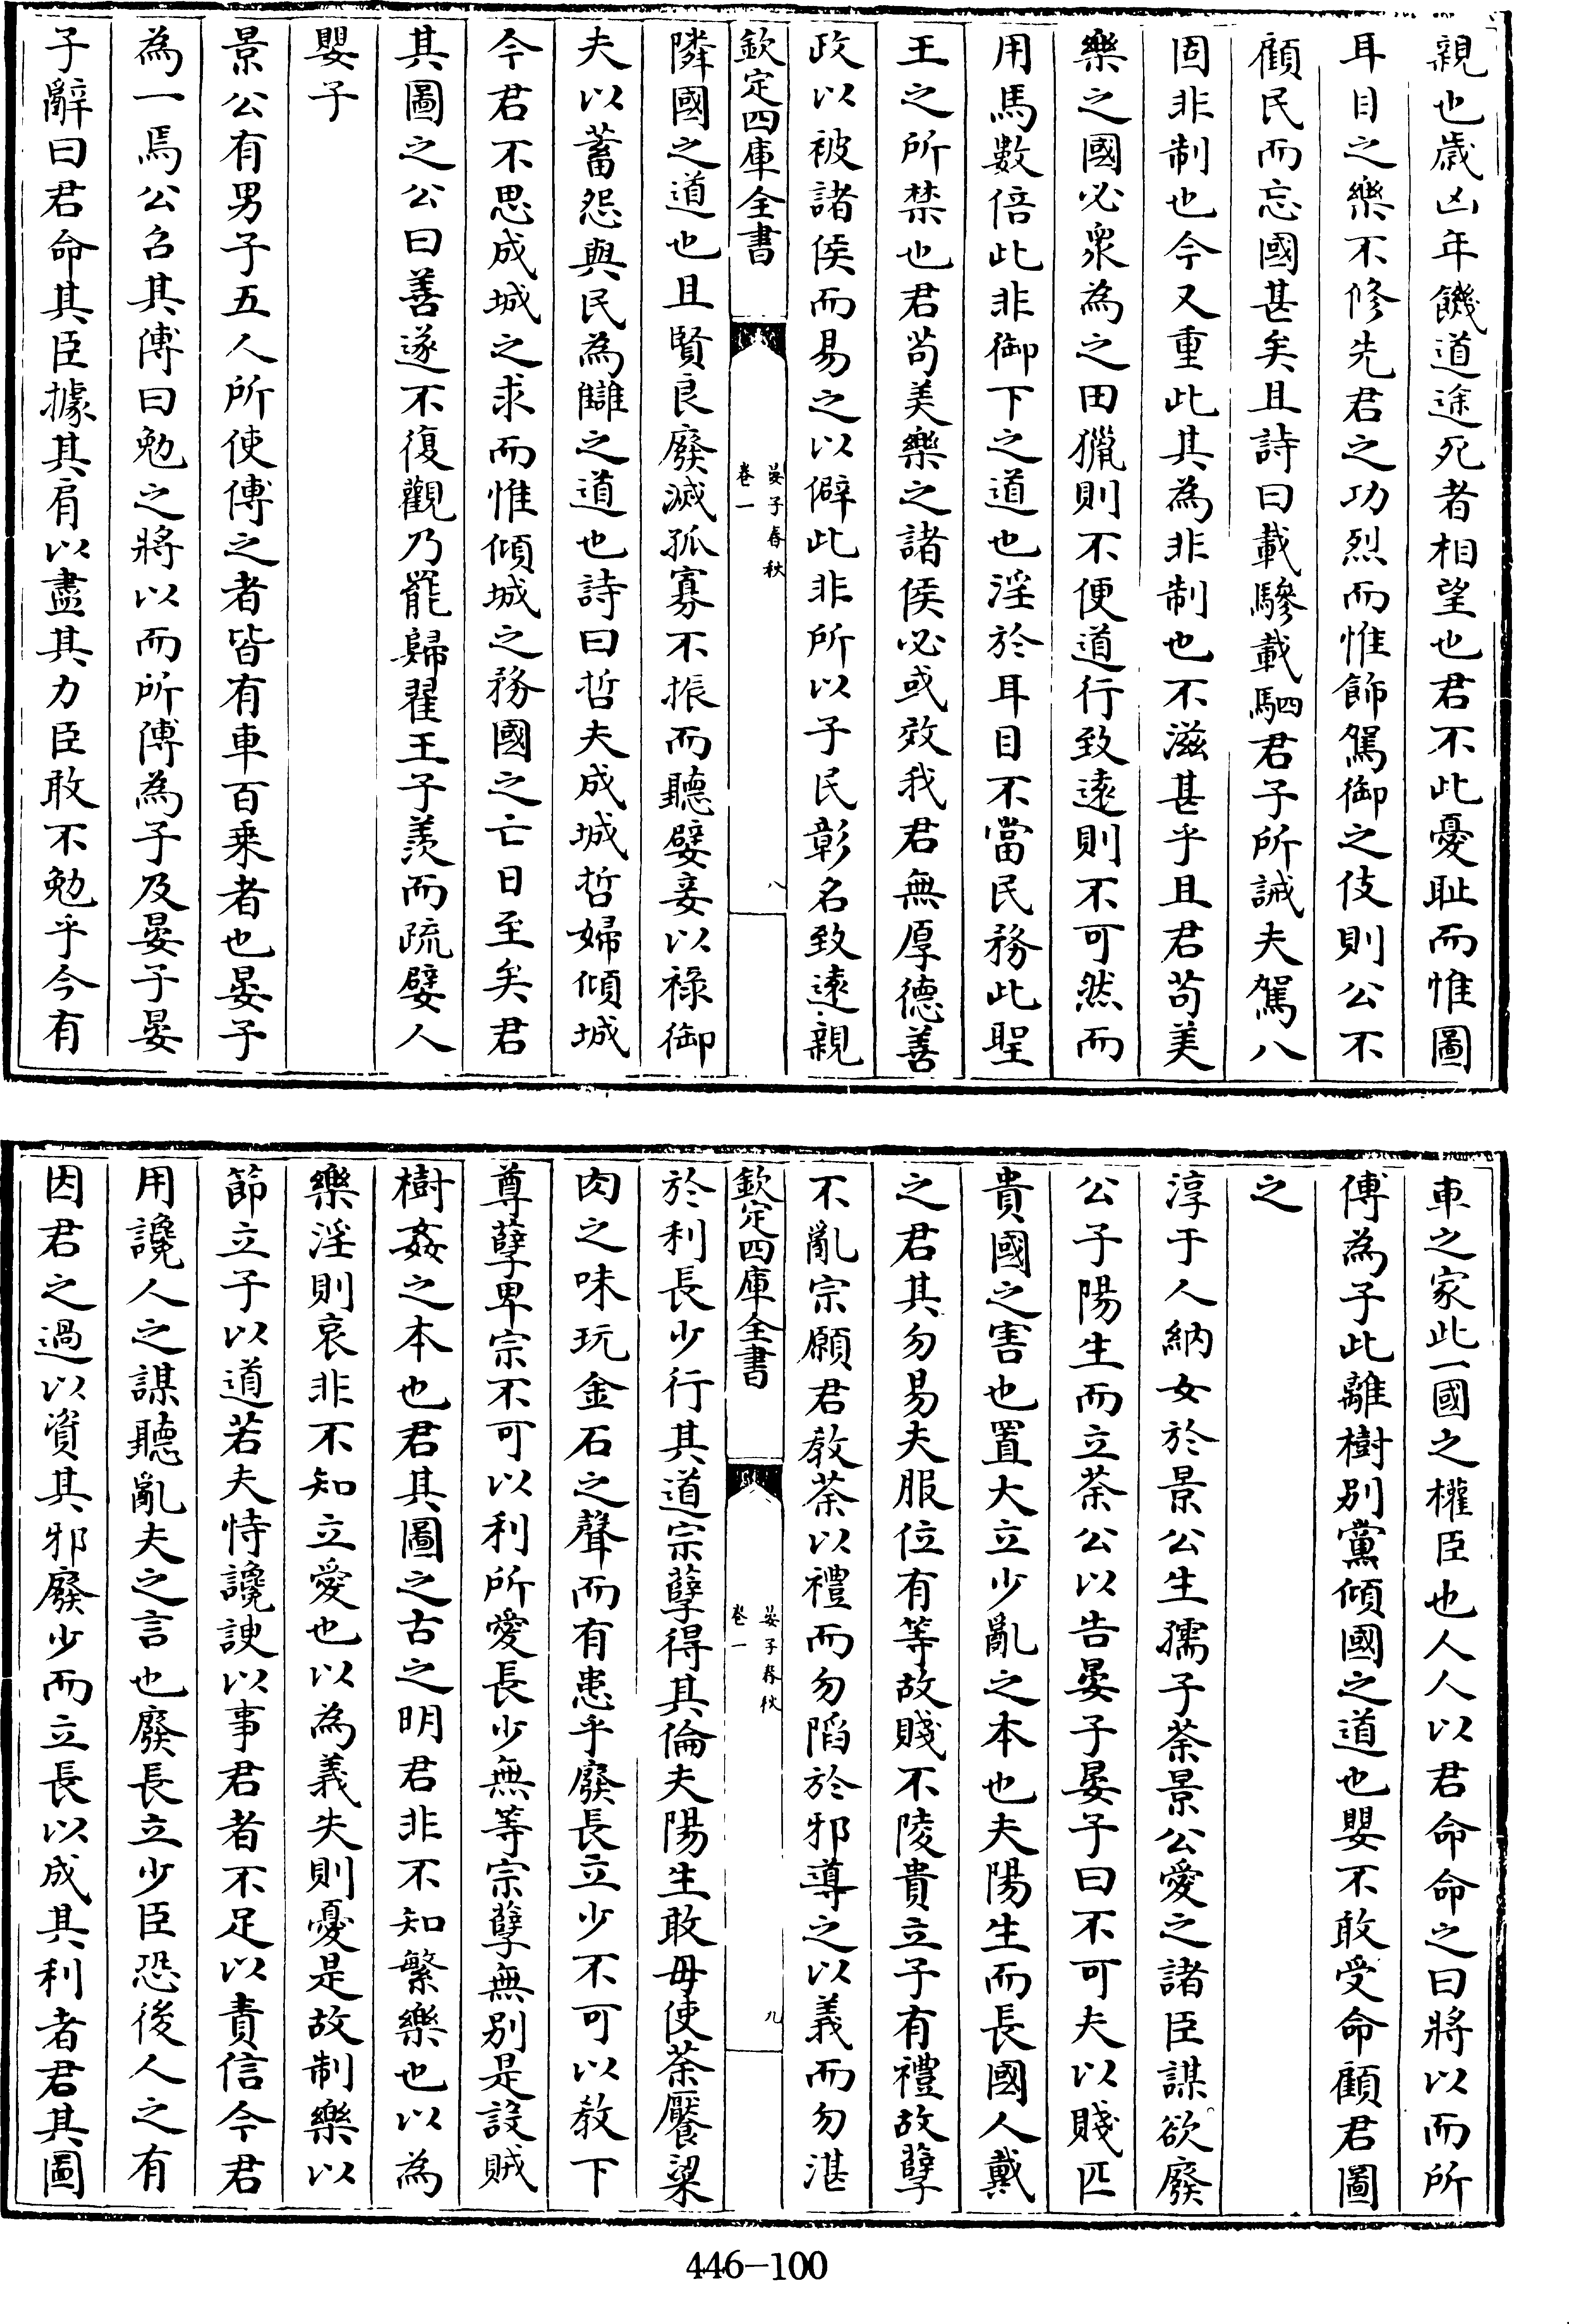 親也歲凶年饑道途死者相望也君不此憂耻而惟圖
耳目之樂不修先君之功烈而惟飾駕御之伎則公不
顧民而忘國甚矣且詩曰載驂載駟君子所誡夫駕八
固非制也今又重此其為非制也不滋甚乎且君茍美
樂之國必衆為之田獵則不便道行致遠則不可然而
用馬數倍此非御下之道也淫於耳目不當民務此聖
王之所禁也君茍美樂之諸侯必或效我君無厚德善
政以被諸侯而易之以僻此非所以子民彰名致遠親
欽定四庫全書
晏子春秋
卷一
八
隣國之道也且賢良廢滅孤寡不振而聽嬖妾以祿御
夫以蓄怨與民為讎之道也詩曰哲夫成城哲婦傾城
今君不思成城之求而惟傾城之務國之亡日至矣君
其圖之公曰善遂不復觀乃罷歸翟王子羨而疏嬖人
嬰子
景公有男子五人所使傅之者皆有車百乘者也晏子
為一焉公召其傅曰勉之將以而所傅為子及晏子晏
子辭曰君命其臣據其肩以盡其力臣敢不勉乎今有
車之家此一國之權臣也人人以君命命之曰將以而所
傅為子此離樹别黨傾國之道也嬰不敢受命顧君圖
之
淳于人納女於景公生孺子荼景公愛之諸臣謀欲廢
公子陽生而立荼公以告晏子晏子曰不可夫以賤匹
貴國之害也置大立少亂之本也夫陽生而長國人戴
之君其勿易夫服位有等故賤不陵貴立子有禮故孽
不亂宗願君教荼以禮而勿陷於邪導之以義而勿湛
欽定四庫全書
晏子春秋
卷一
九
於利長少行其道宗孽得其倫夫陽生敢毋使荼饜粱
肉之味玩金石之聲而有患乎廢長立少不可以教下
尊孽卑宗不可以利所愛長少無等宗孽無别是設賊
樹姦之本也君其圖之古之明君非不知繁樂也以為
樂淫則哀非不知立愛也以為義失則憂是故制樂以
節立子以道若夫恃讒諛以事君者不足以責信今君
用讒人之謀聽亂夫之言也廢長立少臣恐後人之有
因君之過以資其邪廢少而立長以成其利者君其圖
446-100